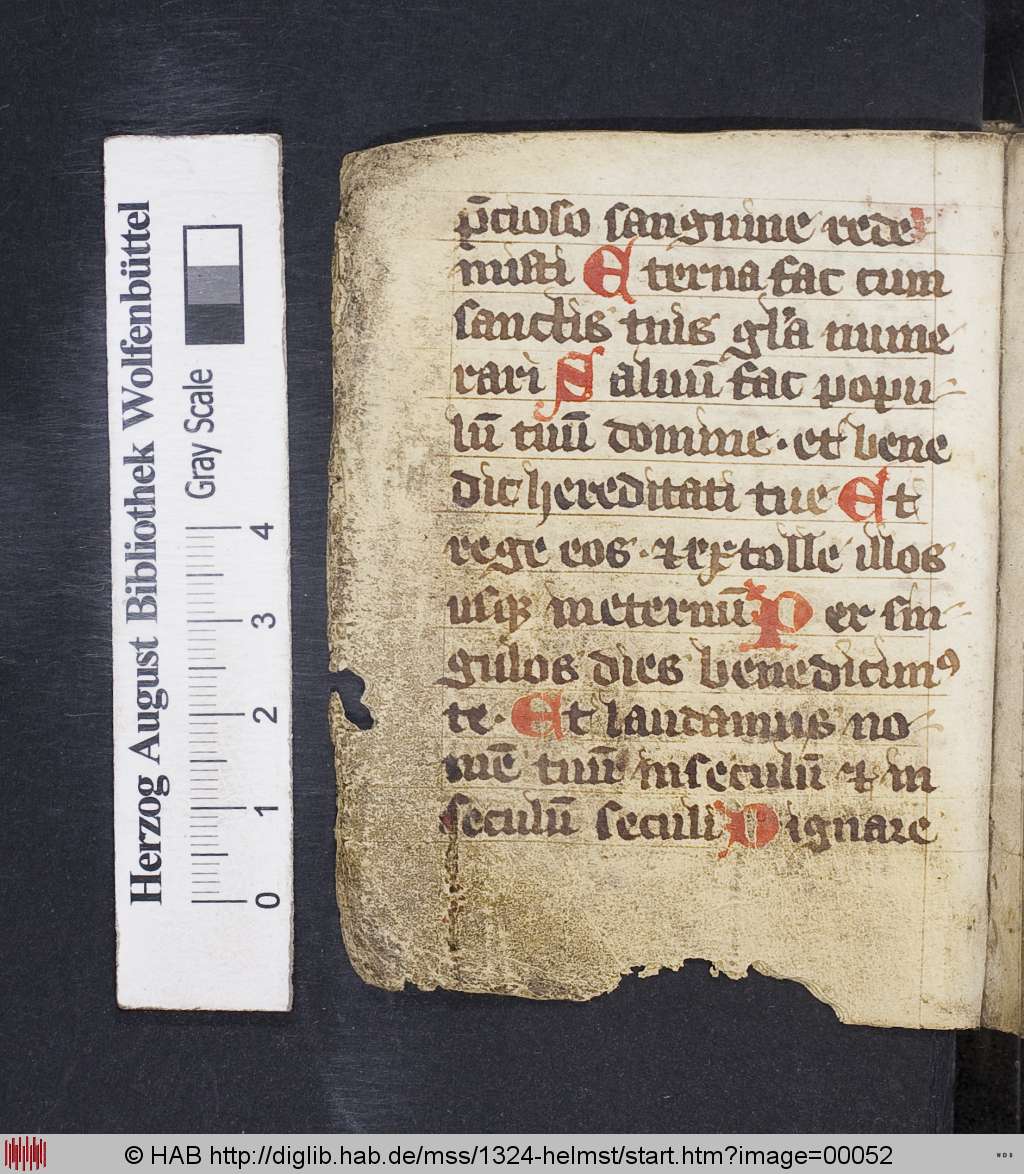 Herzog August Bibliothek Wolfenbüttel
Gray Scale
0 1 2 3 4
p̄cioso sanguine rede
misti Eterna fac cum
sanctis tuis gl̄a nume
rari Saluū fac popu
lū tuū domine · et bene
dic hereditati tue Et
rege eos · ⁊ extolle illos
usqꝫ ineternū Per sin
gulos dies benedicimꝰ
te · Et laudamus no
mē tuū inseculū ⁊ in
seculū seculi Dignare
© HAB http://diglib.hab.de/mss/1324-helmst/start.htm?image=00052
WDB